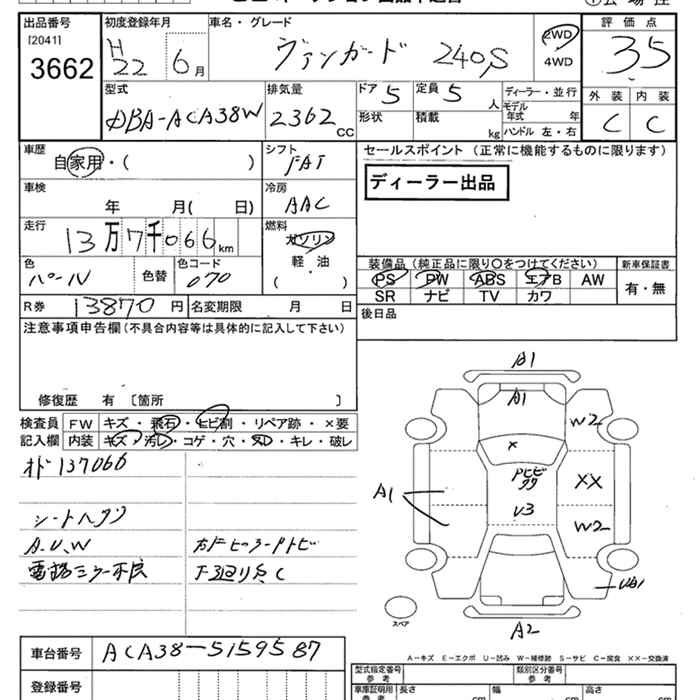 出品番号 初度登録年月 車名・グレード 評価点
[2041] H
3662 22 6月 ヴァンガード 240S 2WD 4WD 35
型式 排気量 ドア 5 定員 5人 ディーラー・並行 外装 内装
DBA-ACA38W 2362CC 形状 積載 kg モデル年式 年 ハンドル 左・右 C C
車歴 シフト セールスポイント(正常に機能するものに限ります)
自家用・( ) FAT
ディーラー出品
車検 冷房
年 月( 日) AAC
走行 燃料
13万7千066km ガソリン
軽・油
( )
色 色替 色コード
パール 070
装備品(純正品に限り○をつけてください) 新車保証書
PS PW ABS エアB AW 有・無
SR ナビ TV カワ
R券 13870円 名変期限 月 日
後日品
注意事項申告欄(不具合内容等は具体的に記入して下さい)
修復歴 有〔箇所 〕
検査員 FW キズ・飛石・ヒビ割・リペア跡・×要
記入欄 内装 キズ・汚レ・コゲ・穴・スレ・キレ・破レ
オド137066
シートヘタリ
A.U.W
電格ミラー不良 下廻りサC
A1
A1
W2
×
XX
A1
U3
W2
A2
スペア
A-キズ E-エクボ U-凹み W-補修跡 S-サビ C-腐食 ××-交換済
車台番号 ACA38-5159587
登録番号
型式指定番号 参考 類別区分番号 参考
車庫証明用 参考 長さ cm 幅 cm 高さ cm